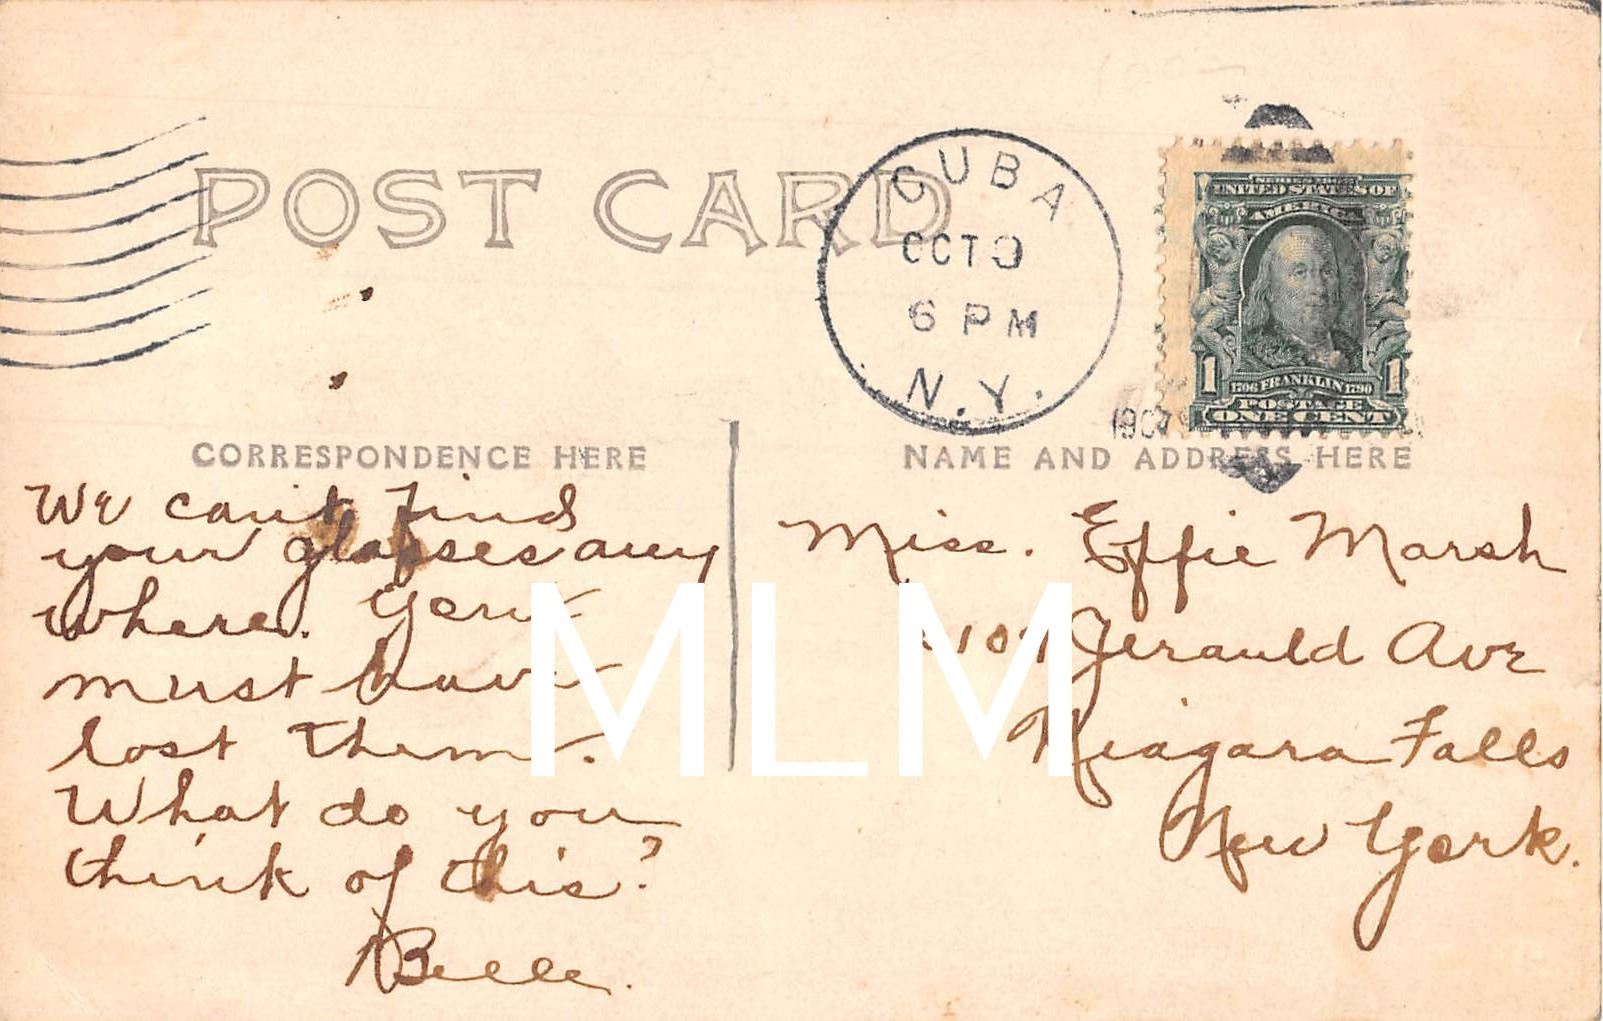 POST CARD
CUBA
OCT
6 PM
N.Y.
1907
UNITED STATES OF
AMERICA
1 1706 FRANKLIN 1790 1
POSTAGE
ONE CENT
CORRESPONDENCE HERE
We can't find
your glasses any
where. You
must have
lost them.
What do you
think of this?
Belle.
NAME AND ADDRESS HERE
Miss. Effie Marsh
Jerauld Ave
Niagara Falls
New York.
MLM